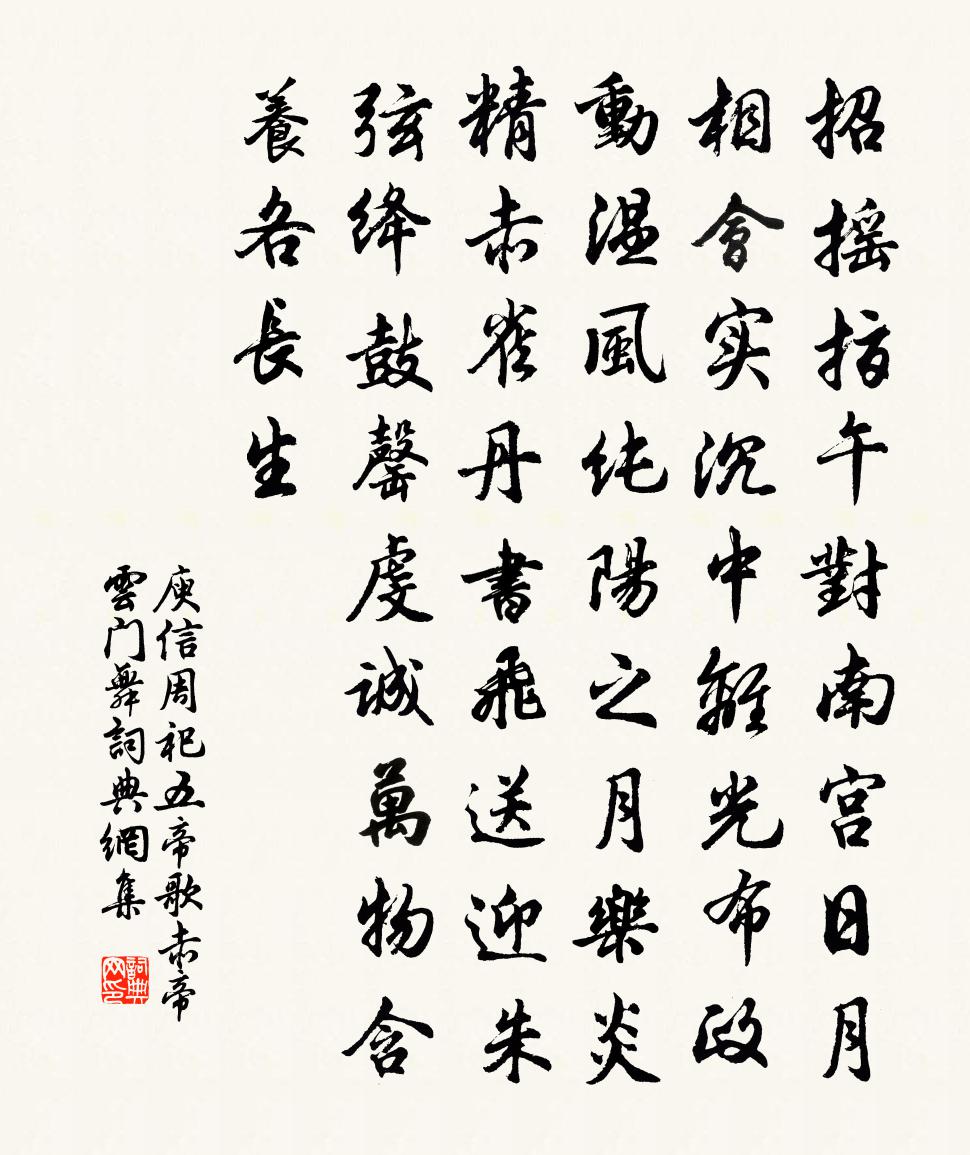 招摇指午對南宫日月
相會实沉中離光布政
動温風纯陽之月樂炎
精赤雀丹書飛送迎朱
弦绛鼓罄虔诚萬物含
養各長生
庾信周祀五帝歌赤帝
雲门舞詞典網集
詞典网印